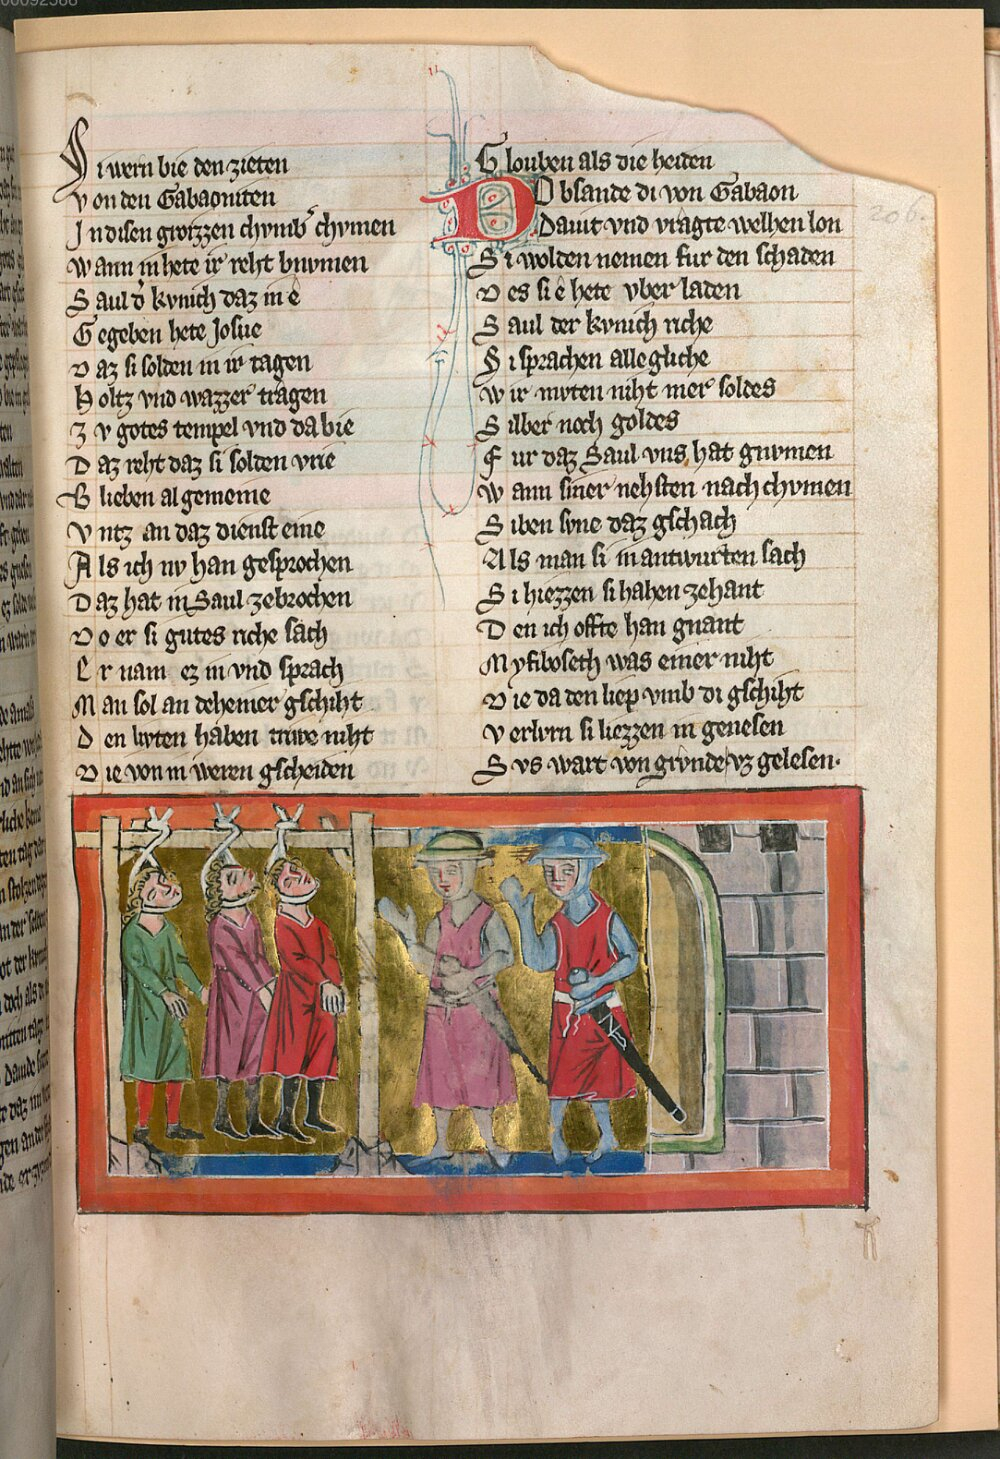 Si wern bie den zieten
Von den Gabaoniten
In disen grozzen chvmb᾽ chvmen
Wann in hete ir reht bnvmen
Saul d᾽ kvnich daz in ê
Gegeben hete Josue
Daz si solden in ir tagen
Holtz vnd wazzer tragen
Zv gotes tempel vnd da bie
Daz reht daz si solden vrie
Blieben al gemeine
Vntz an daz dienst eine
Als ich nv han gesprochen
Daz hat in Saul zebrochen
Do er si gutes riche sach
Er nam ez in vnd sprach
Man sol an deheiner gschiht
Den livten haben triwe niht
Die von in weren gscheiden
Glouben als die heiden
Do bsande di von Gabaon
Dauit vnd vragte welhen lon
Si wolden nemen fur den schaden
Des si ê hete vber laden
Saul der kvnich riche
Si sprachen allegliche
Wir mvten niht mer soldes
Silber noch goldes
Fur daz Saul vns hat gnvmen
Wann siner nehsten nach chvmen
Siben svne daz gschach
Als man si in antwurten sach
Si hiezzen si hahen zehant
Den ich offte han gnant
Myfiboseth was einer niht
Die da den liep vmb di gschiht
Verlvrn si liezzen in genesen
Svs wart von grvnde vz gelesen.
206.